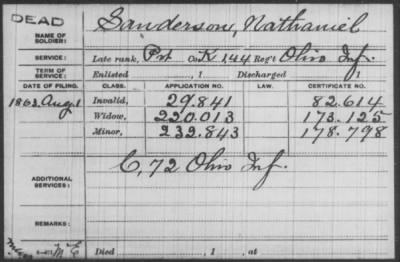 DEAD
NAME OF SOLDIER: Sanderson, Nathaniel
SERVICE: Late rank, Pvt Co. K 144 Reg't Ohio Inf.
TERM OF SERVICE: Enlisted , 1 Discharged , 1
DATE OF FILING. CLASS. APPLICATION NO. LAW. CERTIFICATE NO.
1863. Aug 1 Invalid, 29.841 82.614
Widow, 220.013 173.125
Minor, 232.843 178.798
ADDITIONAL SERVICES: C, 72 Ohio Inf.
REMARKS:
Died , 1 , at